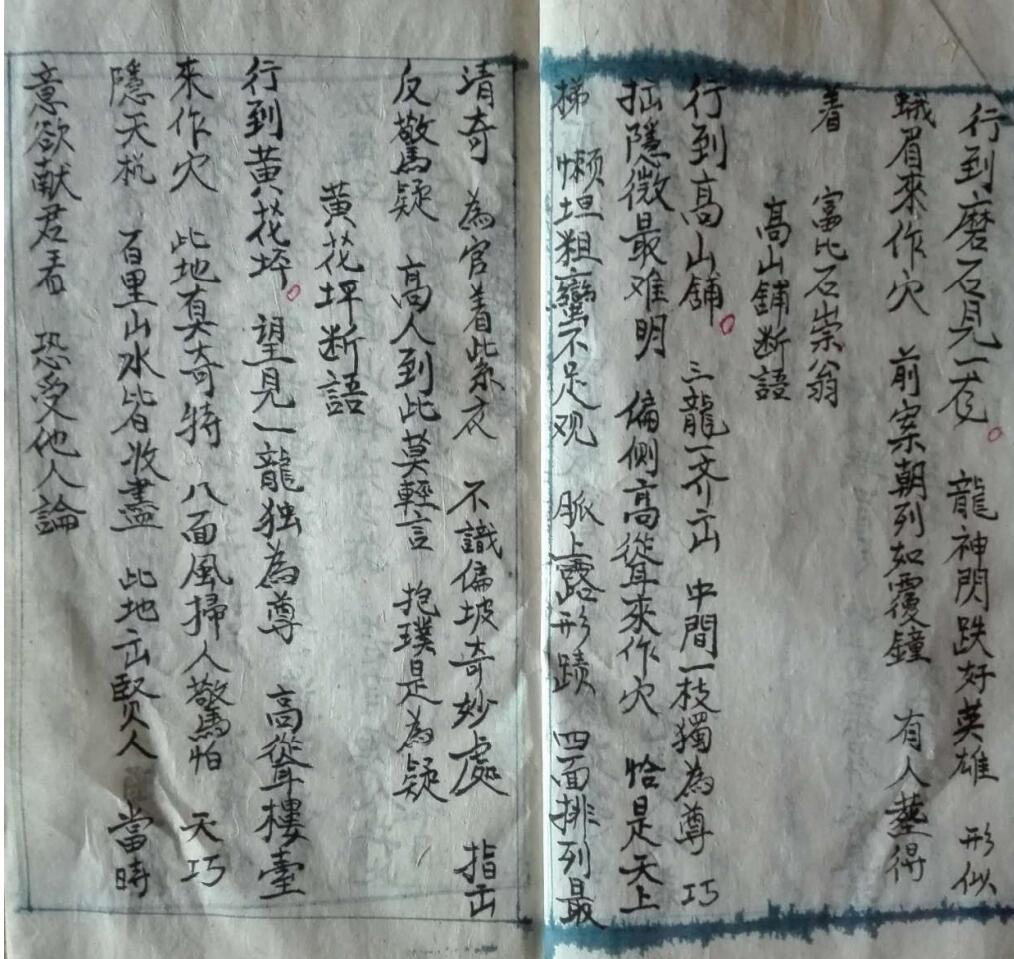 行到磨石見一衮 龍神閃跌好英雄 形似
蛾眉來作穴 前案朝列如覆鐘 有人塟得
着 富比石崇翁
高山舖断語
行到高山舖 三龍一齐出 中間一枝獨為尊 巧
拙隱微最难明 偏侧高聳來作穴 恰是天上
梯 懒坦粗蠻不足观 脈上露形蹟 四面排列最
清奇 為官着紫衣 不識偏坡奇妙處 指出
反驚疑 高人到此莫輕言 抱璞是為疑
黄花坪断語
行到黄花坪 望見一龍独為尊 高聳樓臺
來作穴 此地真奇特 八面風掃人驚怕 天巧
隱天梲 百里山水皆收盡 此地出賢人 當時
意欲献君王看 恐受他人論